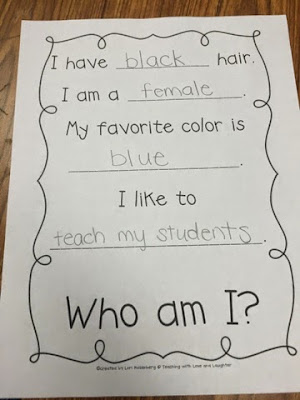 I have black hair.
I am a female.
My favorite color is
blue.
I like to
teach my students.
Who am I?
©Created by Lori Rosenberg @ Teaching with Love and Laughter